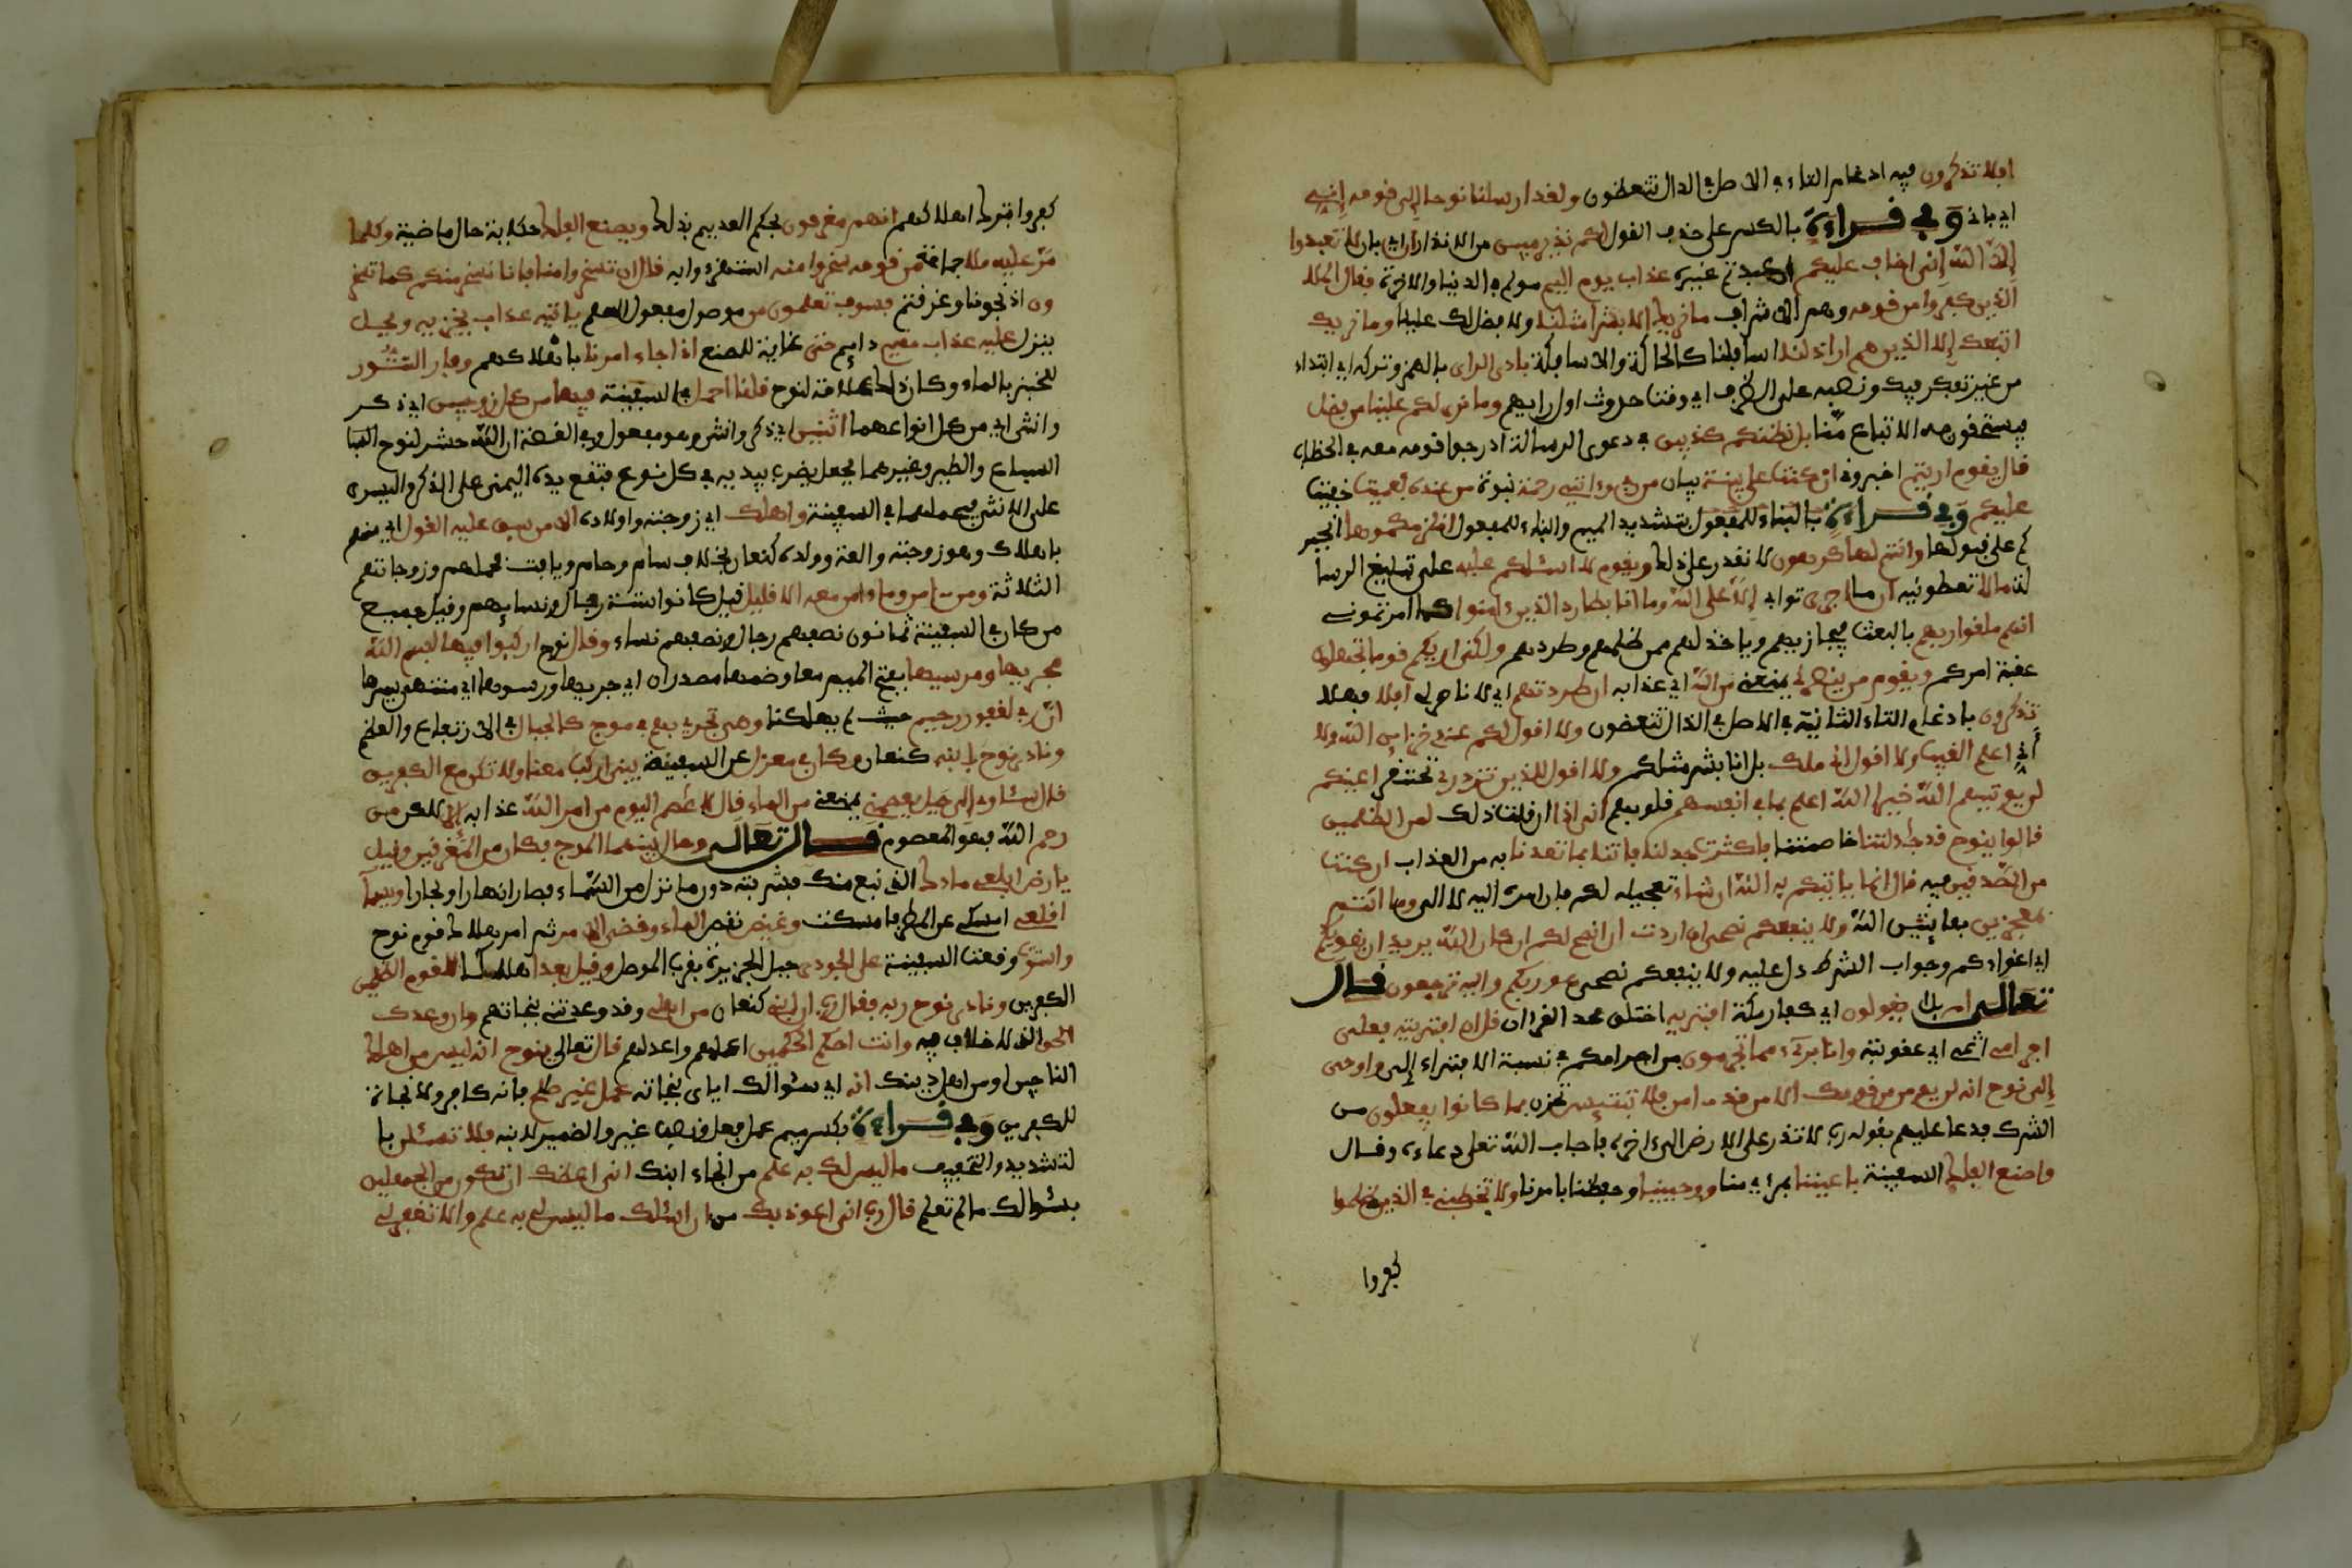 افلا تذكرون فيه ادغام التاء في الاصل في الذال تتعظون ولقد ارسلنا نوحا إلى قومه إني
اي باني وفي قراءة بالكسر على حذف القول لكم نذير مبين من الانذار ان اي بان لا تعبدوا
إلا الله إني اخاف عليكم ان عبدتم غيره عذاب يوم اليم مولم في الدنيا والاخرة فقال الملا
الذين كفروا من قومه وهم الاشراف ما نريك الا بشرا مثلنا ولا فضل لك علينا وما نريك
اتبعك إلا الذين هم اراذلنا اسافلنا كالحاكة والاساكفة بادى الراى بالهمز وتركه اي ابتداء
من غير تفكر فيك ونصبه على الظرف اي وقت حدوث اول رايهم وما نرى لكم علينا من فضل
فيستحقون به الاتباع منا بل نظنكم كذبين في دعوى الرسالة ادرجوا قومه معه في الخطاب
قال يقوم اريتم اخبروني ان كنت على بينة بيان من ربي وءاتيني رحمة نبوة من عنده فعميت خفيت
عليكم وفي قراءة بالبناء للمفعول بتشديد الميم والبناء للمفعول انلزمكموها انجبر
كم على قبولها وانتم لها كرهون لا نقدر على ذلك ويقوم لا اسئلكم عليه على تبليغ الرسا
لة مالا تعطونيه ان ما اجرى ثوابي إلا على الله وما انا بطارد الذين ءامنوا كما امرتموني
انهم ملقوا ربهم بالبعث فيجازيهم وياخذ لهم ممن ظلمهم وطردهم ولكني اريكم قوما تجهلون
عقبة امركم ويقوم من ينصرني يمنعني من الله اي عذابه ان طردتهم اي لا ناصر لي افلا فهلا
تذكرون بادغام التاء الثانية في الاصل في الذال تتعضون ولا اقول لكم عندي خزاين الله ولا
أني اعلم الغيب ولا اقول اني ملك بل انا بشر مثلكم ولا اقول للذين تزدري تحتقر اعينكم
لن يوتيهم الله خيرا الله اعلم بما في انفسهم قلوبهم اني اذا ان قلت ذلك لمن الظلمين
قالوا ينوح قد جدلتنا خاصمتنا فاكثرت جدلنا فاتنا بما تعدنا به من العذاب ان كنت
من الصدقين فيه قال انما ياتيكم به الله ان شاء تعجيله لكم فان امره اليه لا الي وما انتم
بمعجزين بفايتين الله ولا ينفعكم نصحي ان اردت ان انصح لكم ان كان الله يريد ان يغويكم
اي اغواءكم وجواب الشرط دل عليه ولا ينفعكم نصحي هو ربكم واليه ترجعون قال
تعالى ام بل يقولون اي كفار مكة افتريه اختلق محمد القرءان قل ان افتريته فعلي
اجرامي اثمي اي عقوبته وانا بريء مما تجرمون من اجرامكم في نسبة الافتراء إلي واوحي
إلى نوح انه لن يومن من قومك الا من قد ءامن فلا تبتيس تحزن بما كانوا يفعلون من
الشرك فدعا عليهم بقوله رب لا تذر على الارض الى ءاخره فاجاب الله تعلى دعاءه وقال
واصنع الفلك السفينة باعيننا بمرءي منا ووحينا وحفظنا بامرنا ولا تخطبني في الذين ظلموا
كفروا
كفروا بترك اهلاكهم انهم مغرقون بحكم العديهم بذلك ويصنع الفلك حكاية حال ماضية وكلما
مر عليه ملا جماعة من قومه سخروا منه استهزءوا به قال ان تسخروا منا فانا نسخر منكم كما تسخر
ون اذ نجونا وغرقتم فسوف تعلمون من موصول مفعول العلم ياتيه عذاب يخزيه ويحل
ينزل عليه عذاب مقيم دايم حتى غاية للصنع اذا جاء امرنا باهلاكهم وفار التنور
للخبز بالماء وكان ذلك علامة لنوح قلنا احمل في السفينة فيها من كل زوجين اي ذكر
وانثى اي من كل انواعهما اثنين اي ذكر وانثى وهو مفعول وفي القصة ان الله حشر لنوح
السباع والطير وغيرهما فجعل يضرب بيديه في كل نوع فتقع يده اليمنى على الذكر واليسرى
على الانثى فيحملهما في السفينة واهلك اي زوجته واولاده الا من سبق عليه القول اي منهم
باهلاك وهو زوجته والعة وولده كنعان بخلاف سام وحام ويافث فحملهم وزوجاتهم
الثلاثة ومن ءامن وما ءامن معه الا قليل قيل كانوا ستة رجال ونسايهم وقيل جميع
من كان في السفينة ثمانون نصفهم رجال ونصفهم نساء وقال نوح اركبوا فيها بسم الله
مجريها ومرسيها بفتح الميم معا وضمهما مصدران اي جريها ورسوها اي منتهى سيرها
ان ربي لغفور رحيم حيث لم يهلكنا وهي تجري بهم في موج كالجبال في الارتفاع والعظم
ونادى نوح ابنه كنعان وكان في معزل عن السفينة يبني اركب معنا ولا تكن مع الكفرين
قال سئاوي إلى جبل يعصمني يمنعني من الماء قال لا عصم اليوم من امر الله عذابه إلا لكن من
رحم الله فهو المعصوم قال تعالى وحال بينهما الموج فكان من المغرقين وقيل
يارض ابلعي ماءك الذي نبع منك فشربته دون ما نزل من السماء فصار انهارا وبحارا ويسما
اقلعي امسكي عن المطر فامسكت وغيض نقص الماء وقضي الامر تم امر هلاك قوم نوح
واستوت وقفت السفينة على الجودي جبل الجزيرة بقرب الموصل وقيل بعدا هلاكا للقوم الظلمين
الكفرين ونادى نوح ربه فقال رب ان ابني كنعان من اهلي وقد وعدتني بنجاتهم وان وعدك
الحق الذي لا خلاف فيه وانت احكم الحكمين اعلمهم واعدلهم قال تعالى ينوح انه ليس من اهلك
الناجين او من اهل دينك انه اي سئوالك اياى بنجاته عمل غير صلح فانه كافر ولا نجاة
للكفرين وفي قراءة بكسر ميم عمل فعل ونصب غير والضمير لابنه فلا تسئلن با
لتشديد والتخفيف ما ليس لك به علم من انجاء ابنك اني اعظك ان تكون من الجهلين
بسئوالك ما لم تعلم قال رب اني اعوذ بك من ان اسئلك ما ليس لي به علم والا تغفر لي